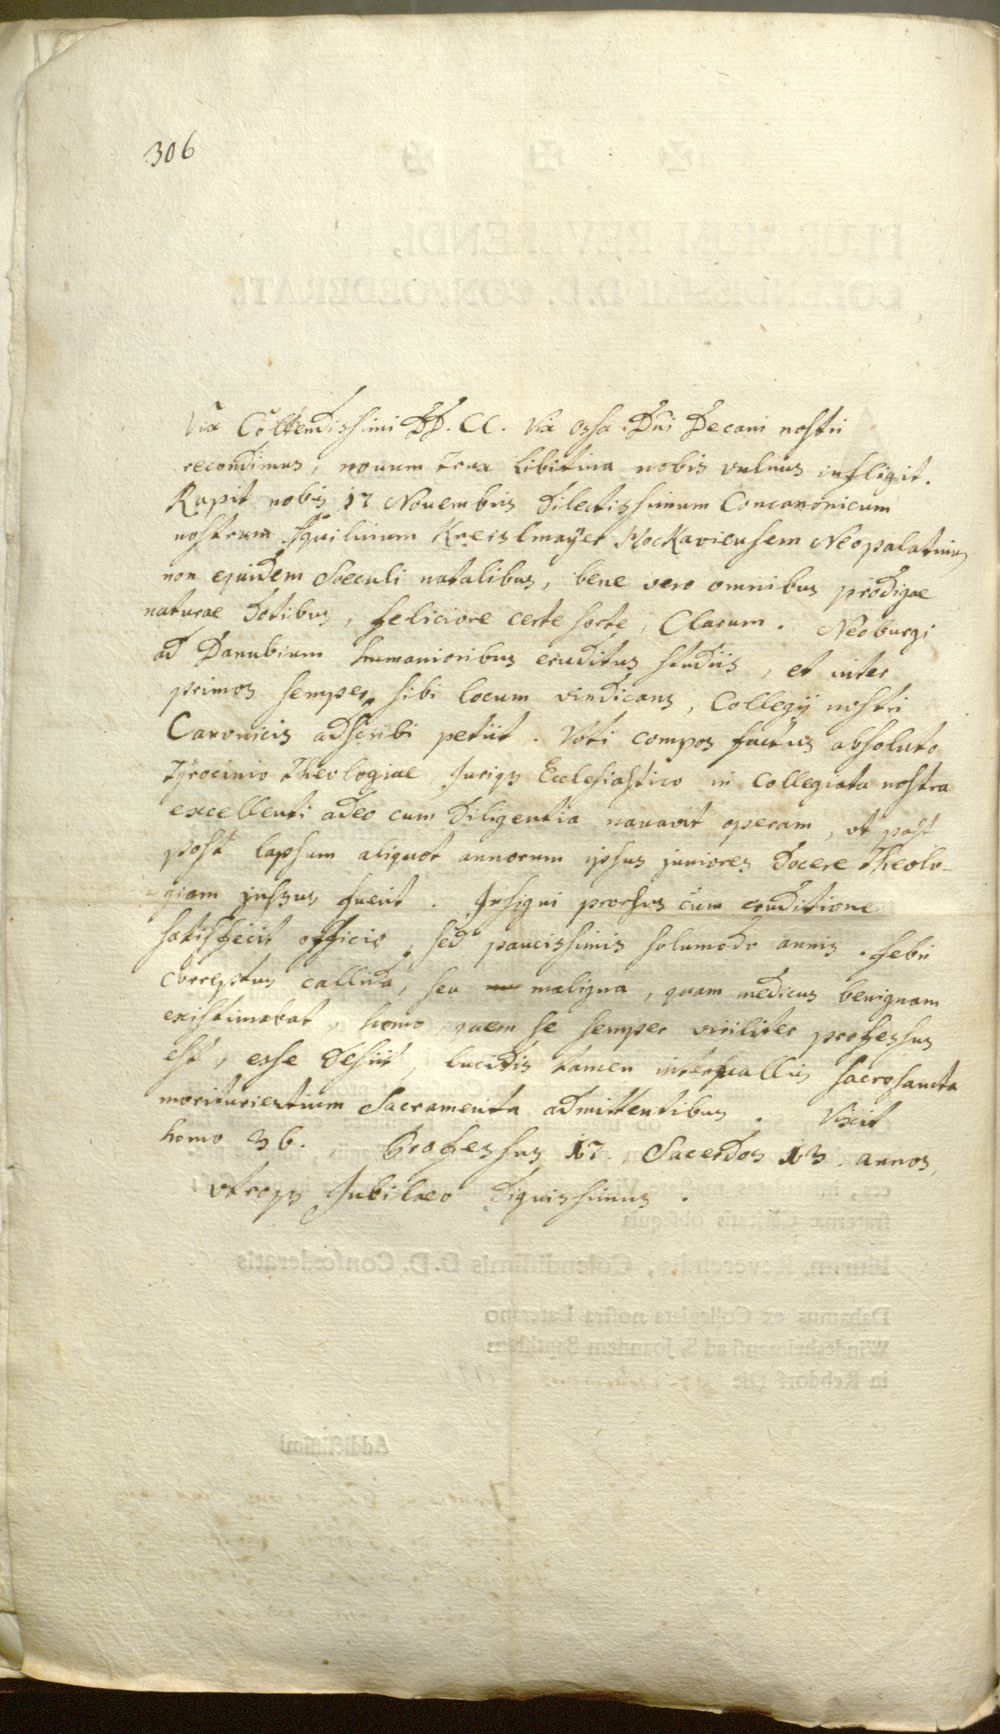 306
Vix Collendissimi DD. CC. Vix ossa Dñi Decani nostri
recondimus, novum trux Libitina nobis vulnus infligit.
Rapit nobis 17 Novembris dilectissimum Concanonicum
nostrum Aquilinum Kreislmaÿer Neopalatinum,
non ejusdem Soeculi natalibus, bene vero omnibus prodigae
naturae dotibus, feliciore certe sorte, Clarum. Neoburgi
ad Danubium humanioribus eruditus studiis, et inter
primos semper sibi locum vindicans, Collegij nostri
Canonicis adscribi petiit. Voti compos factus absoluto
Tyrocinio Theologiae Juriqs Ecclesiastico in Collegiata nostra
excellenti adeo cum diligentia navavit operam, vt post
post lapsum aliquot annorum ipsus juniores docere Theolo-
giam jussus fuerit. Insigni prorsus cum eruditione
satisfecit officio, sed paucissimis solumodo annis. febri
correptus callida, seu maligna, quam medicus benignam
existimabat, homo, quem se semper viriliter professus
est, esse desiit, lucidis tamen intervallis sacrosancta
moriturientium Sacramenta admittentibus. Vixit
homo 36., Professus 17., Sacerdos 13. annos,
vtroqs Jubilaeo dignissimus.